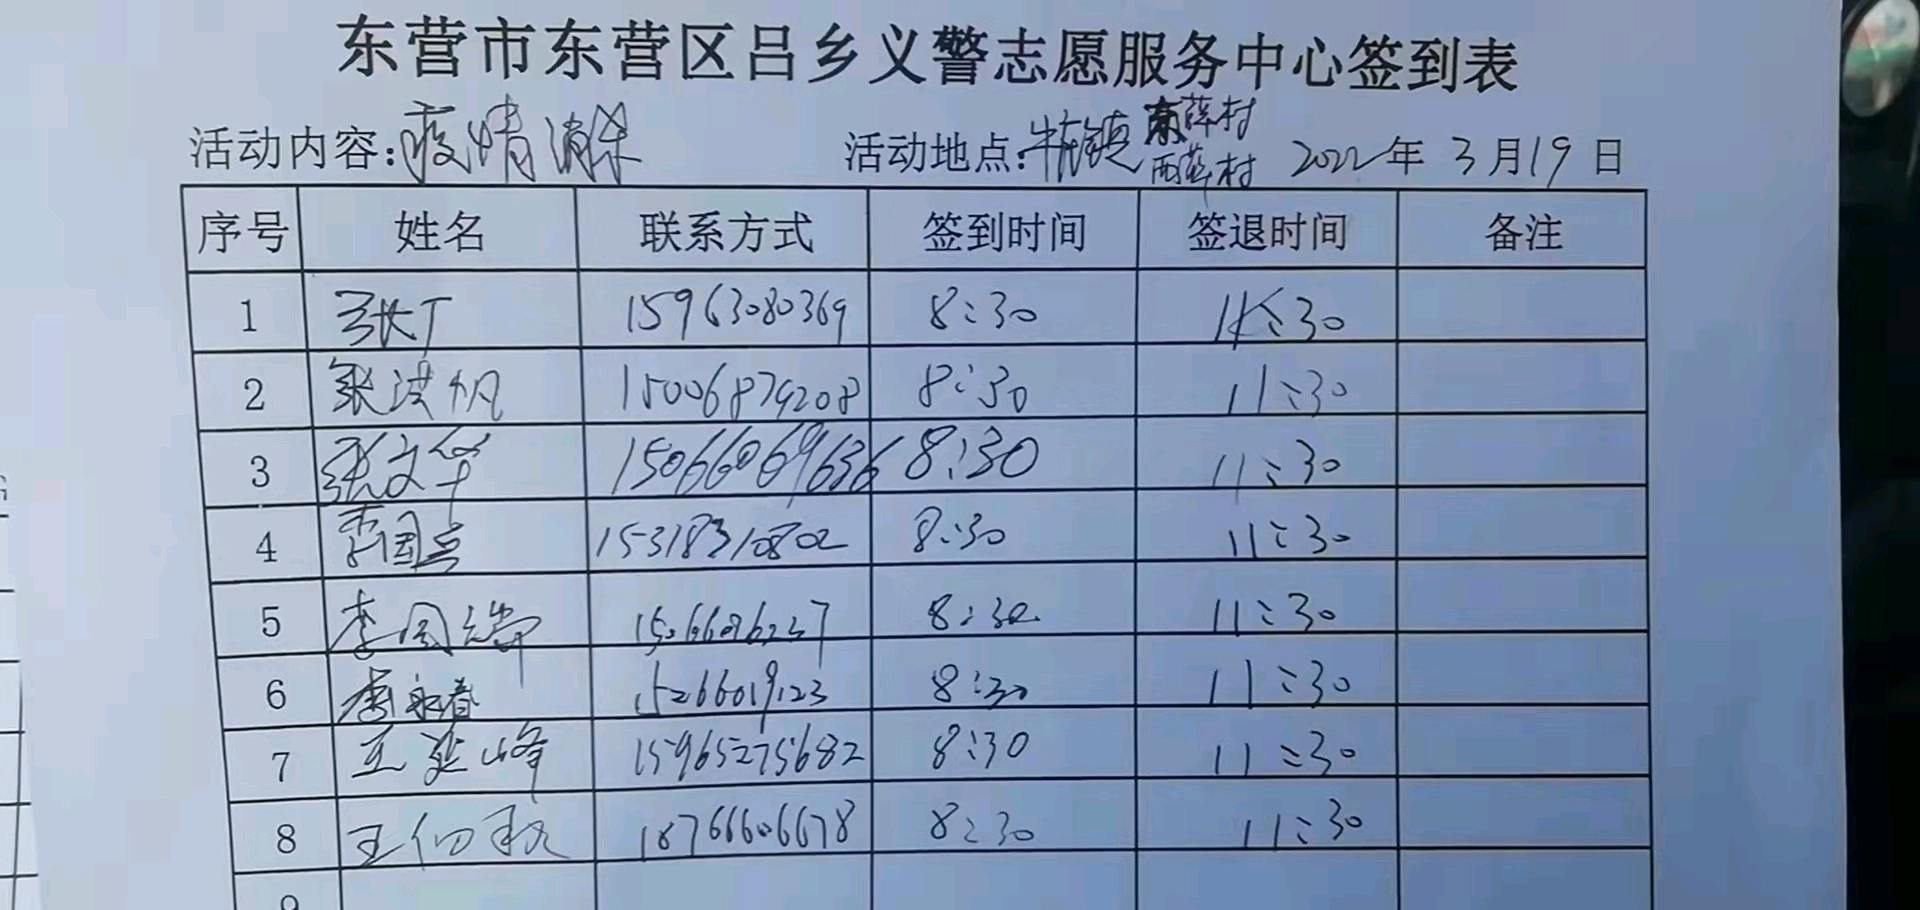 东营市东营区吕乡义警志愿服务中心签到表
活动内容:疫情消杀 活动地点:牛庄镇 东薛村 西薛村 2022年 3月19日
序号 姓名 联系方式 签到时间 签退时间 备注
1 张丁 15963080369 8:30 11:30
2 张洪帆 15006879208 8:30 11:30
3 张文华 15066069636 8:30 11:30
4 李国兵 15318310802 8:30 11:30
5 李国瑞 8:30 11:30
6 李永春 15266019123 8:30 11:30
7 王延峰 15965275682 8:30 11:30
8 王 18766606678 8:30 11:30
9